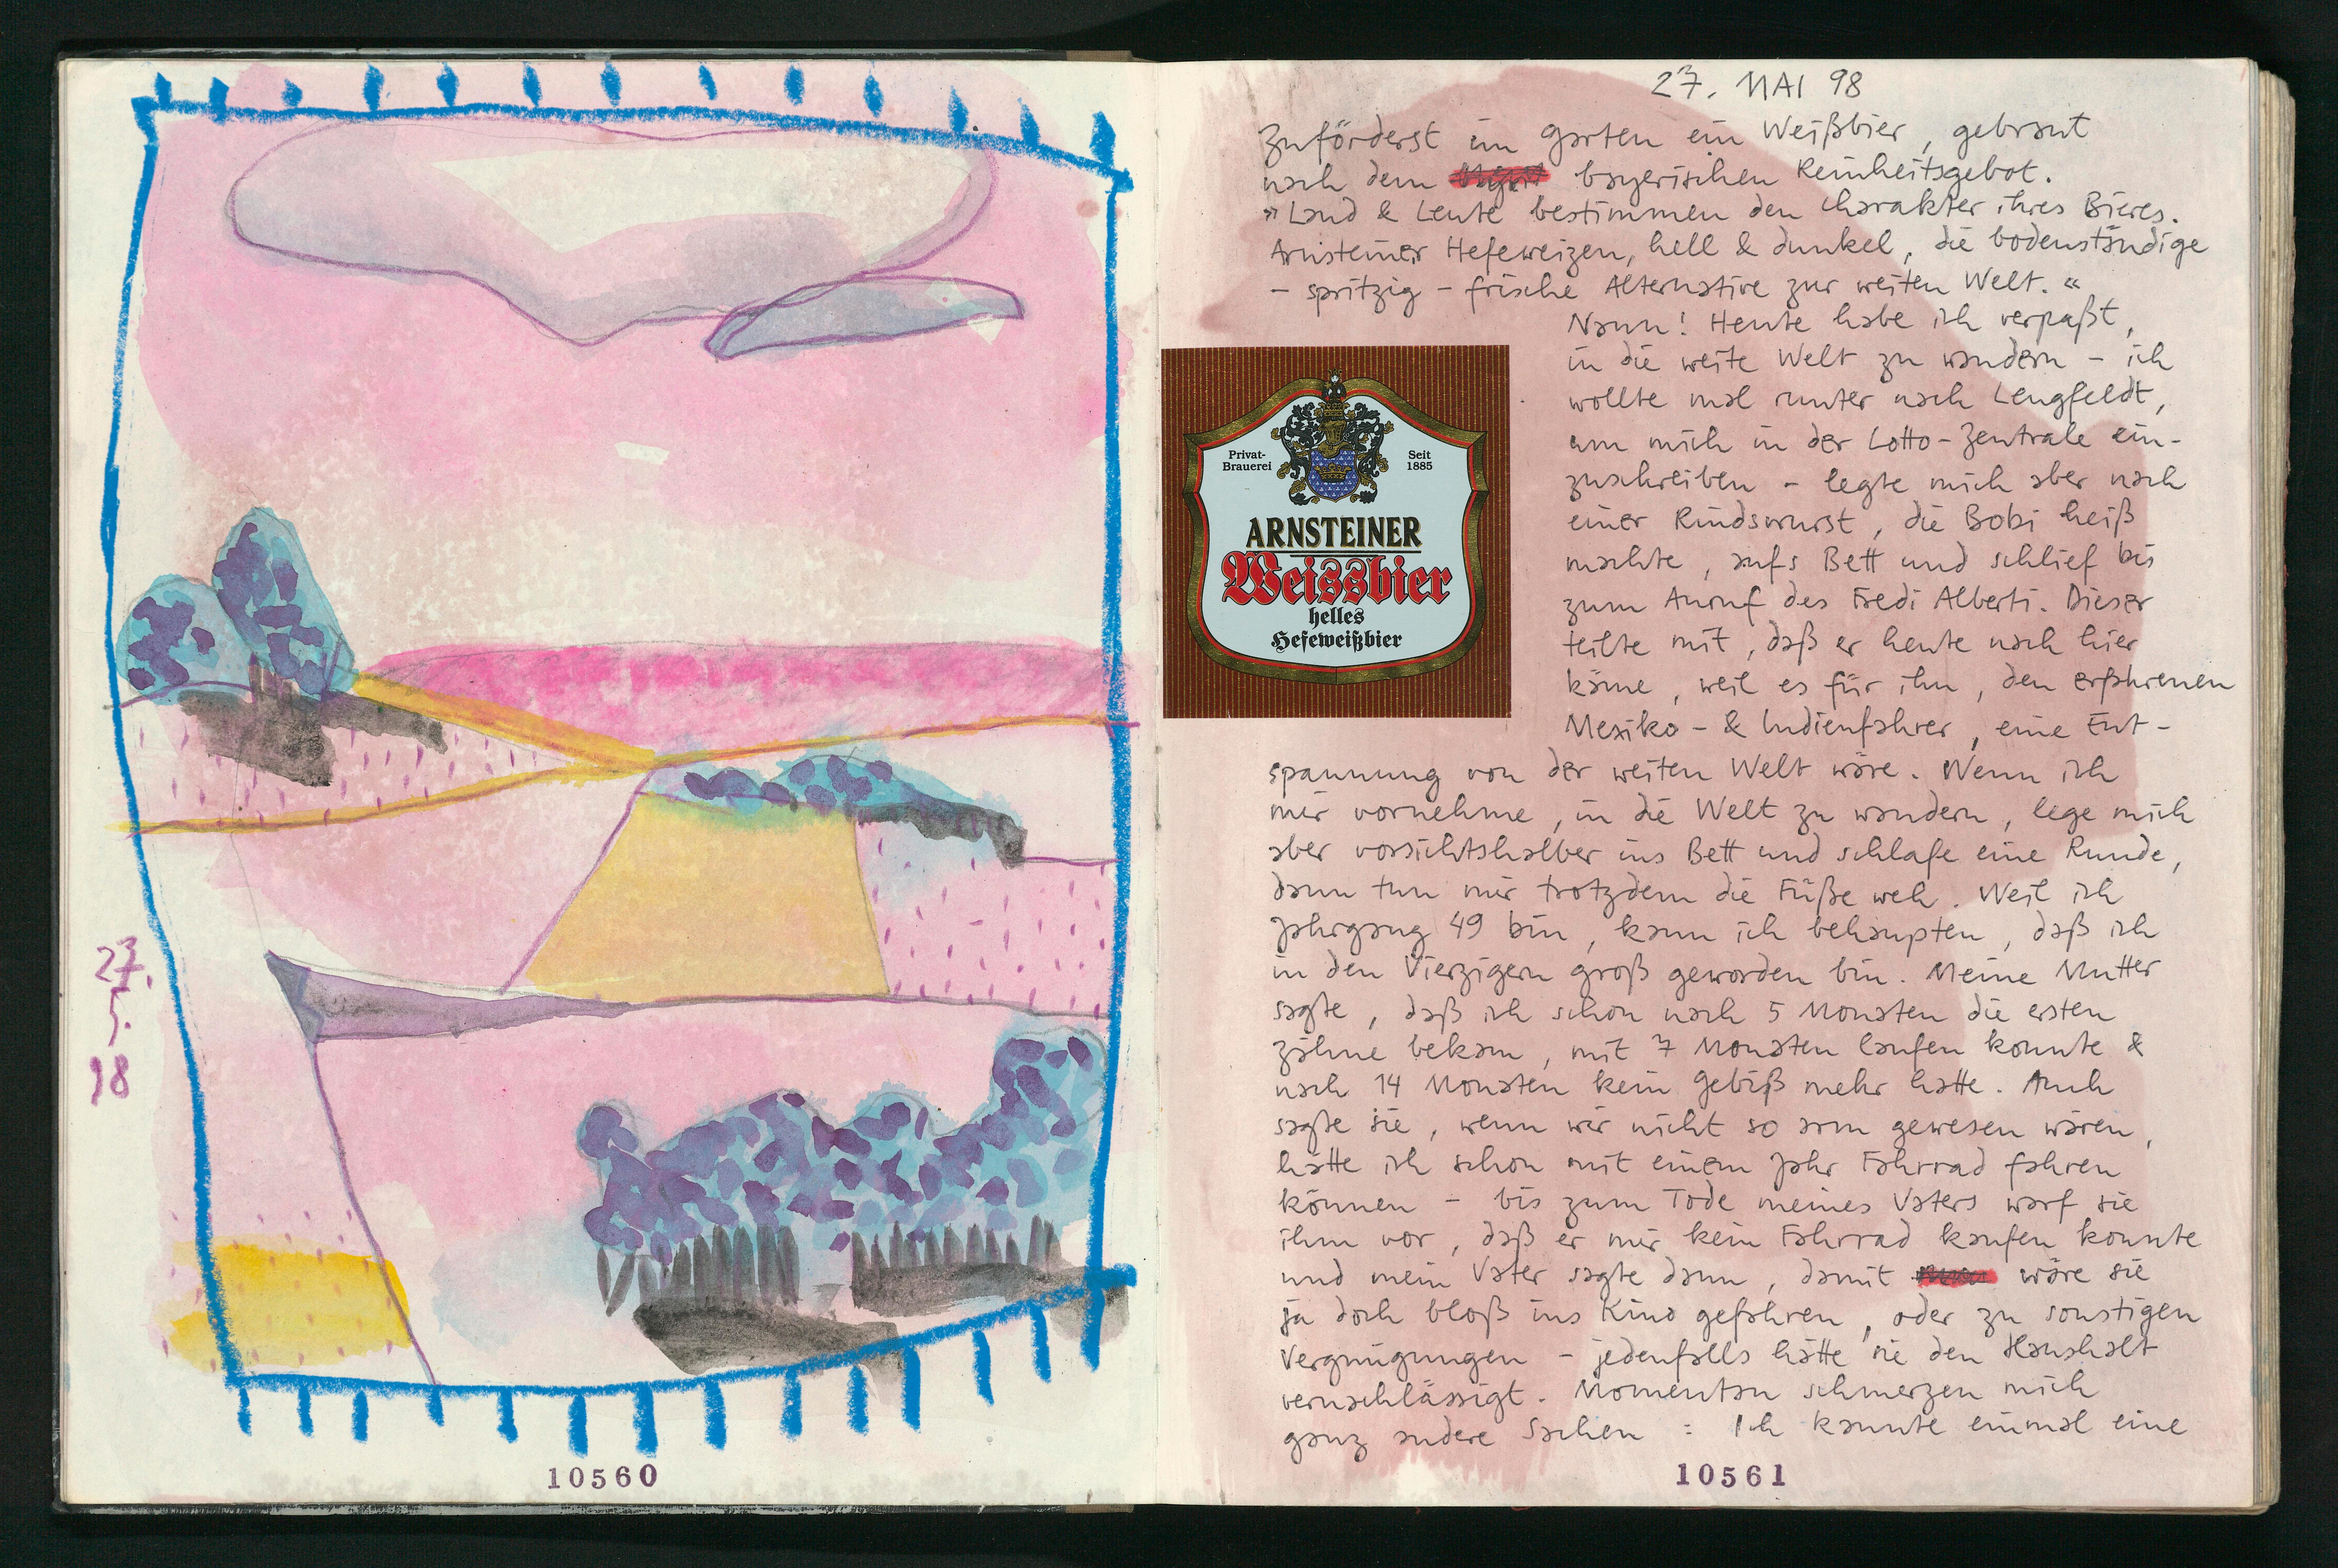 27.
5.
98
10560
27. MAI 98
Zuförderst im Garten ein Weißbier, gebraut
nach dem bayerischen Reinheitsgebot.
"Land & Leute bestimmen den Charakter ihres Bieres.
Arnsteiner Hefeweizen, hell & dunkel, die bodenständige
- spritzig - frische Alternative zur weiten Welt."
Nann! Heute habe ich verpaßt,
in die weite Welt zu wandern - ich
wollte mal runter nach Lengfeldt,
um mich in der Lotto-Zentrale ein-
zuschreiben - legte mich aber nach
einer Rindswurst, die Bobi heiß
machte, aufs Bett und schlief bis
zum Anruf des Fredi Alberti. Dieser
teilte mit, daß er heute nach hier
käme, weil es für ihn, den erfahrenen
Mexiko- & Indienfahrer, eine Ent-
spannung von der weiten Welt wäre. Wenn ich
mir vornehme, in die Welt zu wandern, lege mich
aber vorsichtshalber ins Bett und schlafe eine Runde,
dann tun mir trotzdem die Füße weh. Weil ich
Jahrgang 49 bin, kann ich behaupten, daß ich
in den Vierzigern groß geworden bin. Meine Mutter
sagte, daß ich schon nach 5 Monaten die ersten
Zähne bekam, mit 7 Monaten laufen konnte &
nach 14 Monaten kein Gebiß mehr hatte. Auch
sagte sie, wenn wir nicht so arm gewesen wären,
hätte ich schon mit einem Jahr Fahrrad fahren
können - bis zum Tode meines Vaters warf sie
ihm vor, daß er mir kein Fahrrad kaufen konnte
und mein Vater sagte dann, damit wäre sie
ja doch bloß ins Kino gefahren, oder zu sonstigen
Vergnügungen - jedenfalls hätte sie den Haushalt
vernachlässigt. Momentan schmerzen mich
ganz andere Sachen : Ich kannte einmal eine
Privat-
Brauerei
Seit
1885
ARNSTEINER
Weissbier
helles
Hefeweißbier
10561